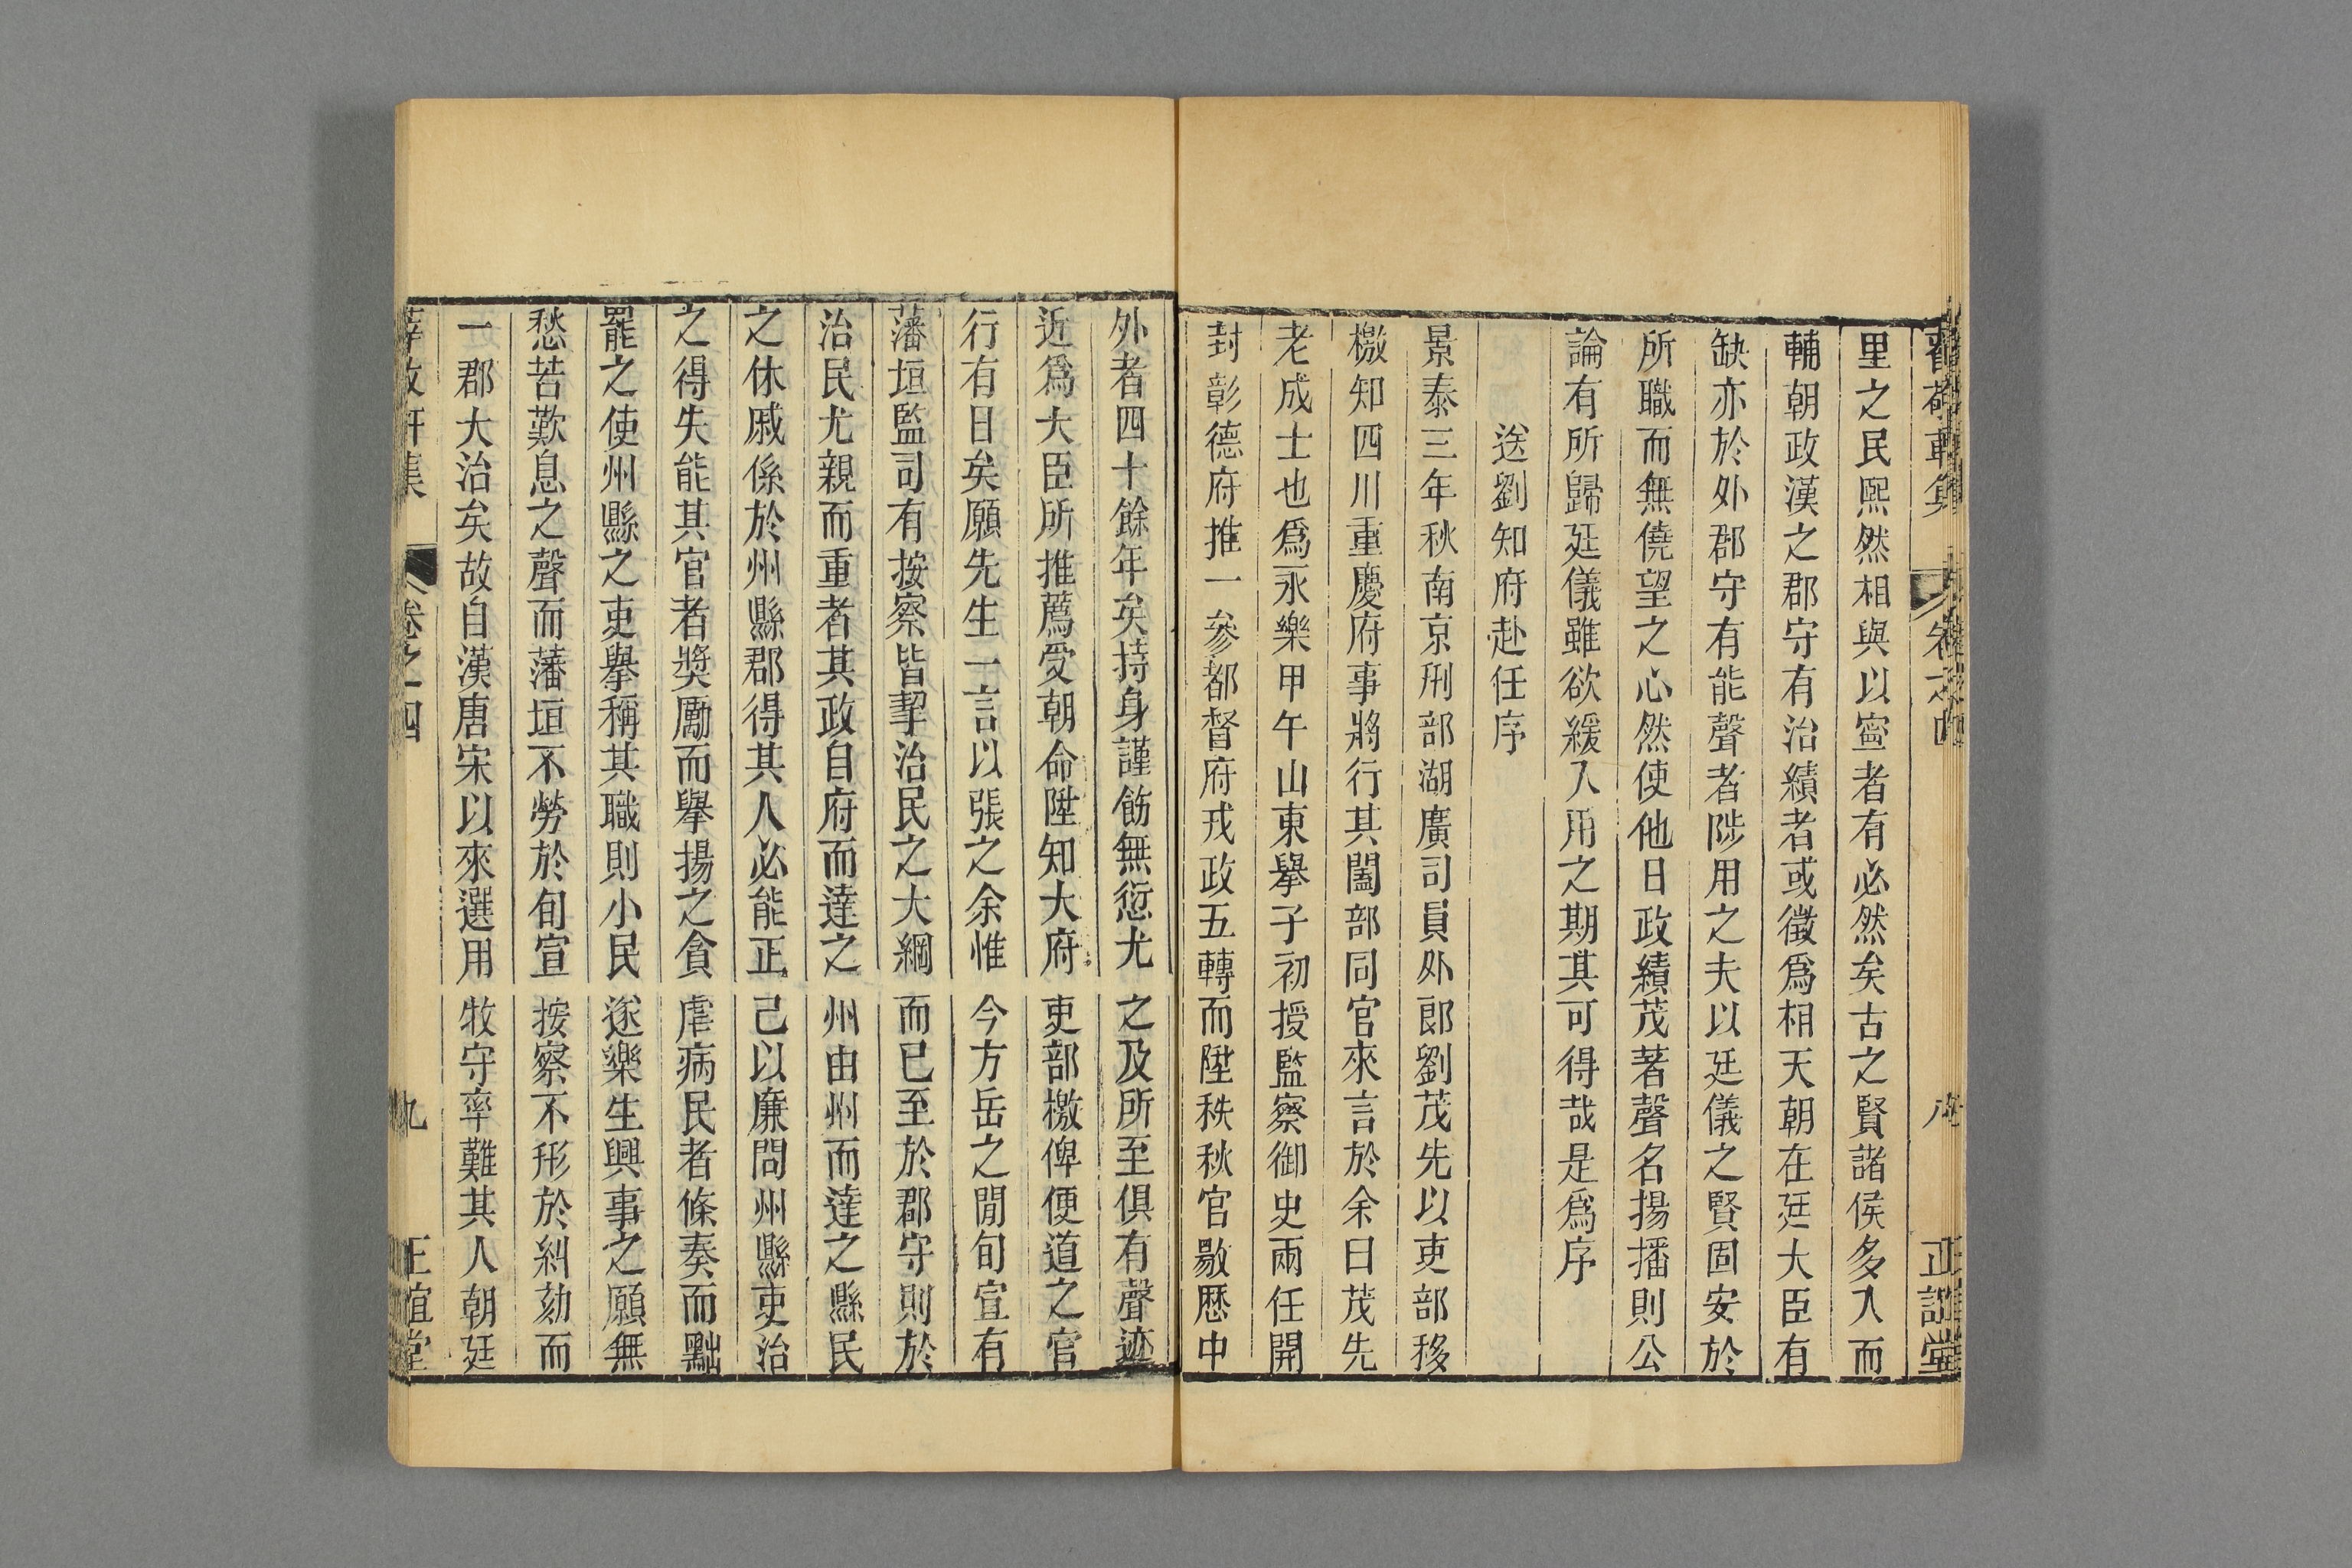 里之民熙然相與以寧者有必然矣古之賢諸侯多入而
輔朝政漢之郡守有治績者或徵爲相天朝在廷大臣有
缺亦於外郡守有能聲者陟用之夫以廷儀之賢固安於
所職而無僥望之心然使他日政績茂著聲名揚播則公
論有所歸廷儀雖欲緩入用之期其可得哉是爲序
送劉知府赴任序
景泰三年秋南京刑部湖廣司員外郎劉茂先以吏部移
檄知四川重慶府事將行其闔部同官來言於余曰茂先
老成士也爲永樂甲午山東舉子初授監察御史兩任開
封彰德府推一參都督府戎政五轉而陞秩秋官敭歷中
外者四十餘年矣持身謹飭無愆尤之及所至俱有聲迹
近爲大臣所推薦受朝命陞知大府吏部檄俾便道之官
行有日矣願先生一言以張之余惟今方岳之閒旬宣有
藩垣監司有按察皆挈治民之大綱而已至於郡守則於
治民尤親而重者其政自府而達之州由州而達之縣民
之休戚係於州縣郡得其人必能正己以廉問州縣吏治
之得失能其官者獎勵而舉揚之貪虐病民者條奏而黜
罷之使州縣之吏舉稱其職則小民遂樂生興事之願無
愁苦歎息之聲而藩垣不勞於旬宣按察不形於糾劾而
一郡大治矣故自漢唐宋以來選用牧守率難其人朝廷
薛敬軒集 卷之四 九 正誼堂